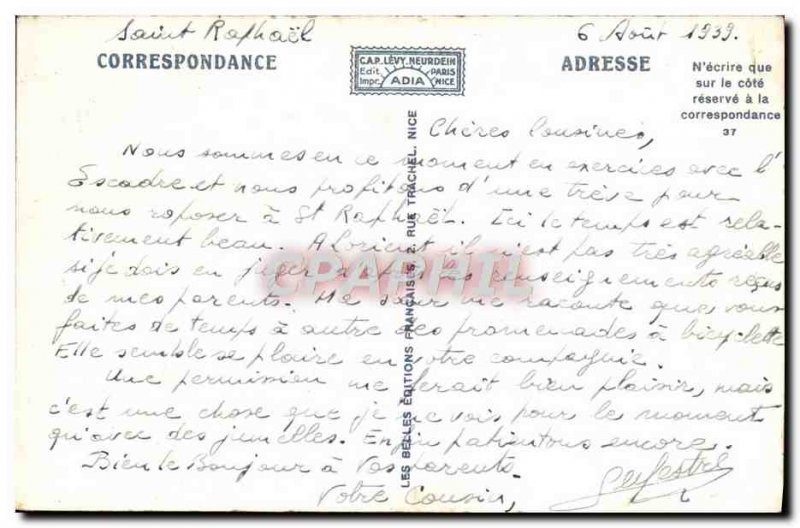 Saint Raphaël 6 Août 1939.
CORRESPONDANCE
C.A.P. LÉVY, NEURDEIN
Edit. PARIS
Impr. ADIA NICE
ADRESSE
N'écrire que
sur le côté
réservé à la
correspondance
37
LES BELLES ÉDITIONS FRANÇAISES, 2, RUE TRACHEL, NICE
Chères Cousines,
Nous sommes en ce moment en exercices avec l'
Escadre et nous profitons d'une trève pour
nous reposer à St Raphaël. Ici le temps est rela-
tivement beau. A Lorient il n'est pas très agréable
si je dois en juger d'après les renseignements reçus
de mes parents. Ma sœur me raconte que vous
faites de temps à autre des promenades à bicyclette
Elle semble se plaire en votre compagnie.
Une permission me ferait bien plaisir, mais
c'est une chose que je ne vois pour le moment
qu'avec des jumelles. Enfin patientons encore.
Bien le Bonjour à Vos parents
Votre Cousin,
CPAPHIL